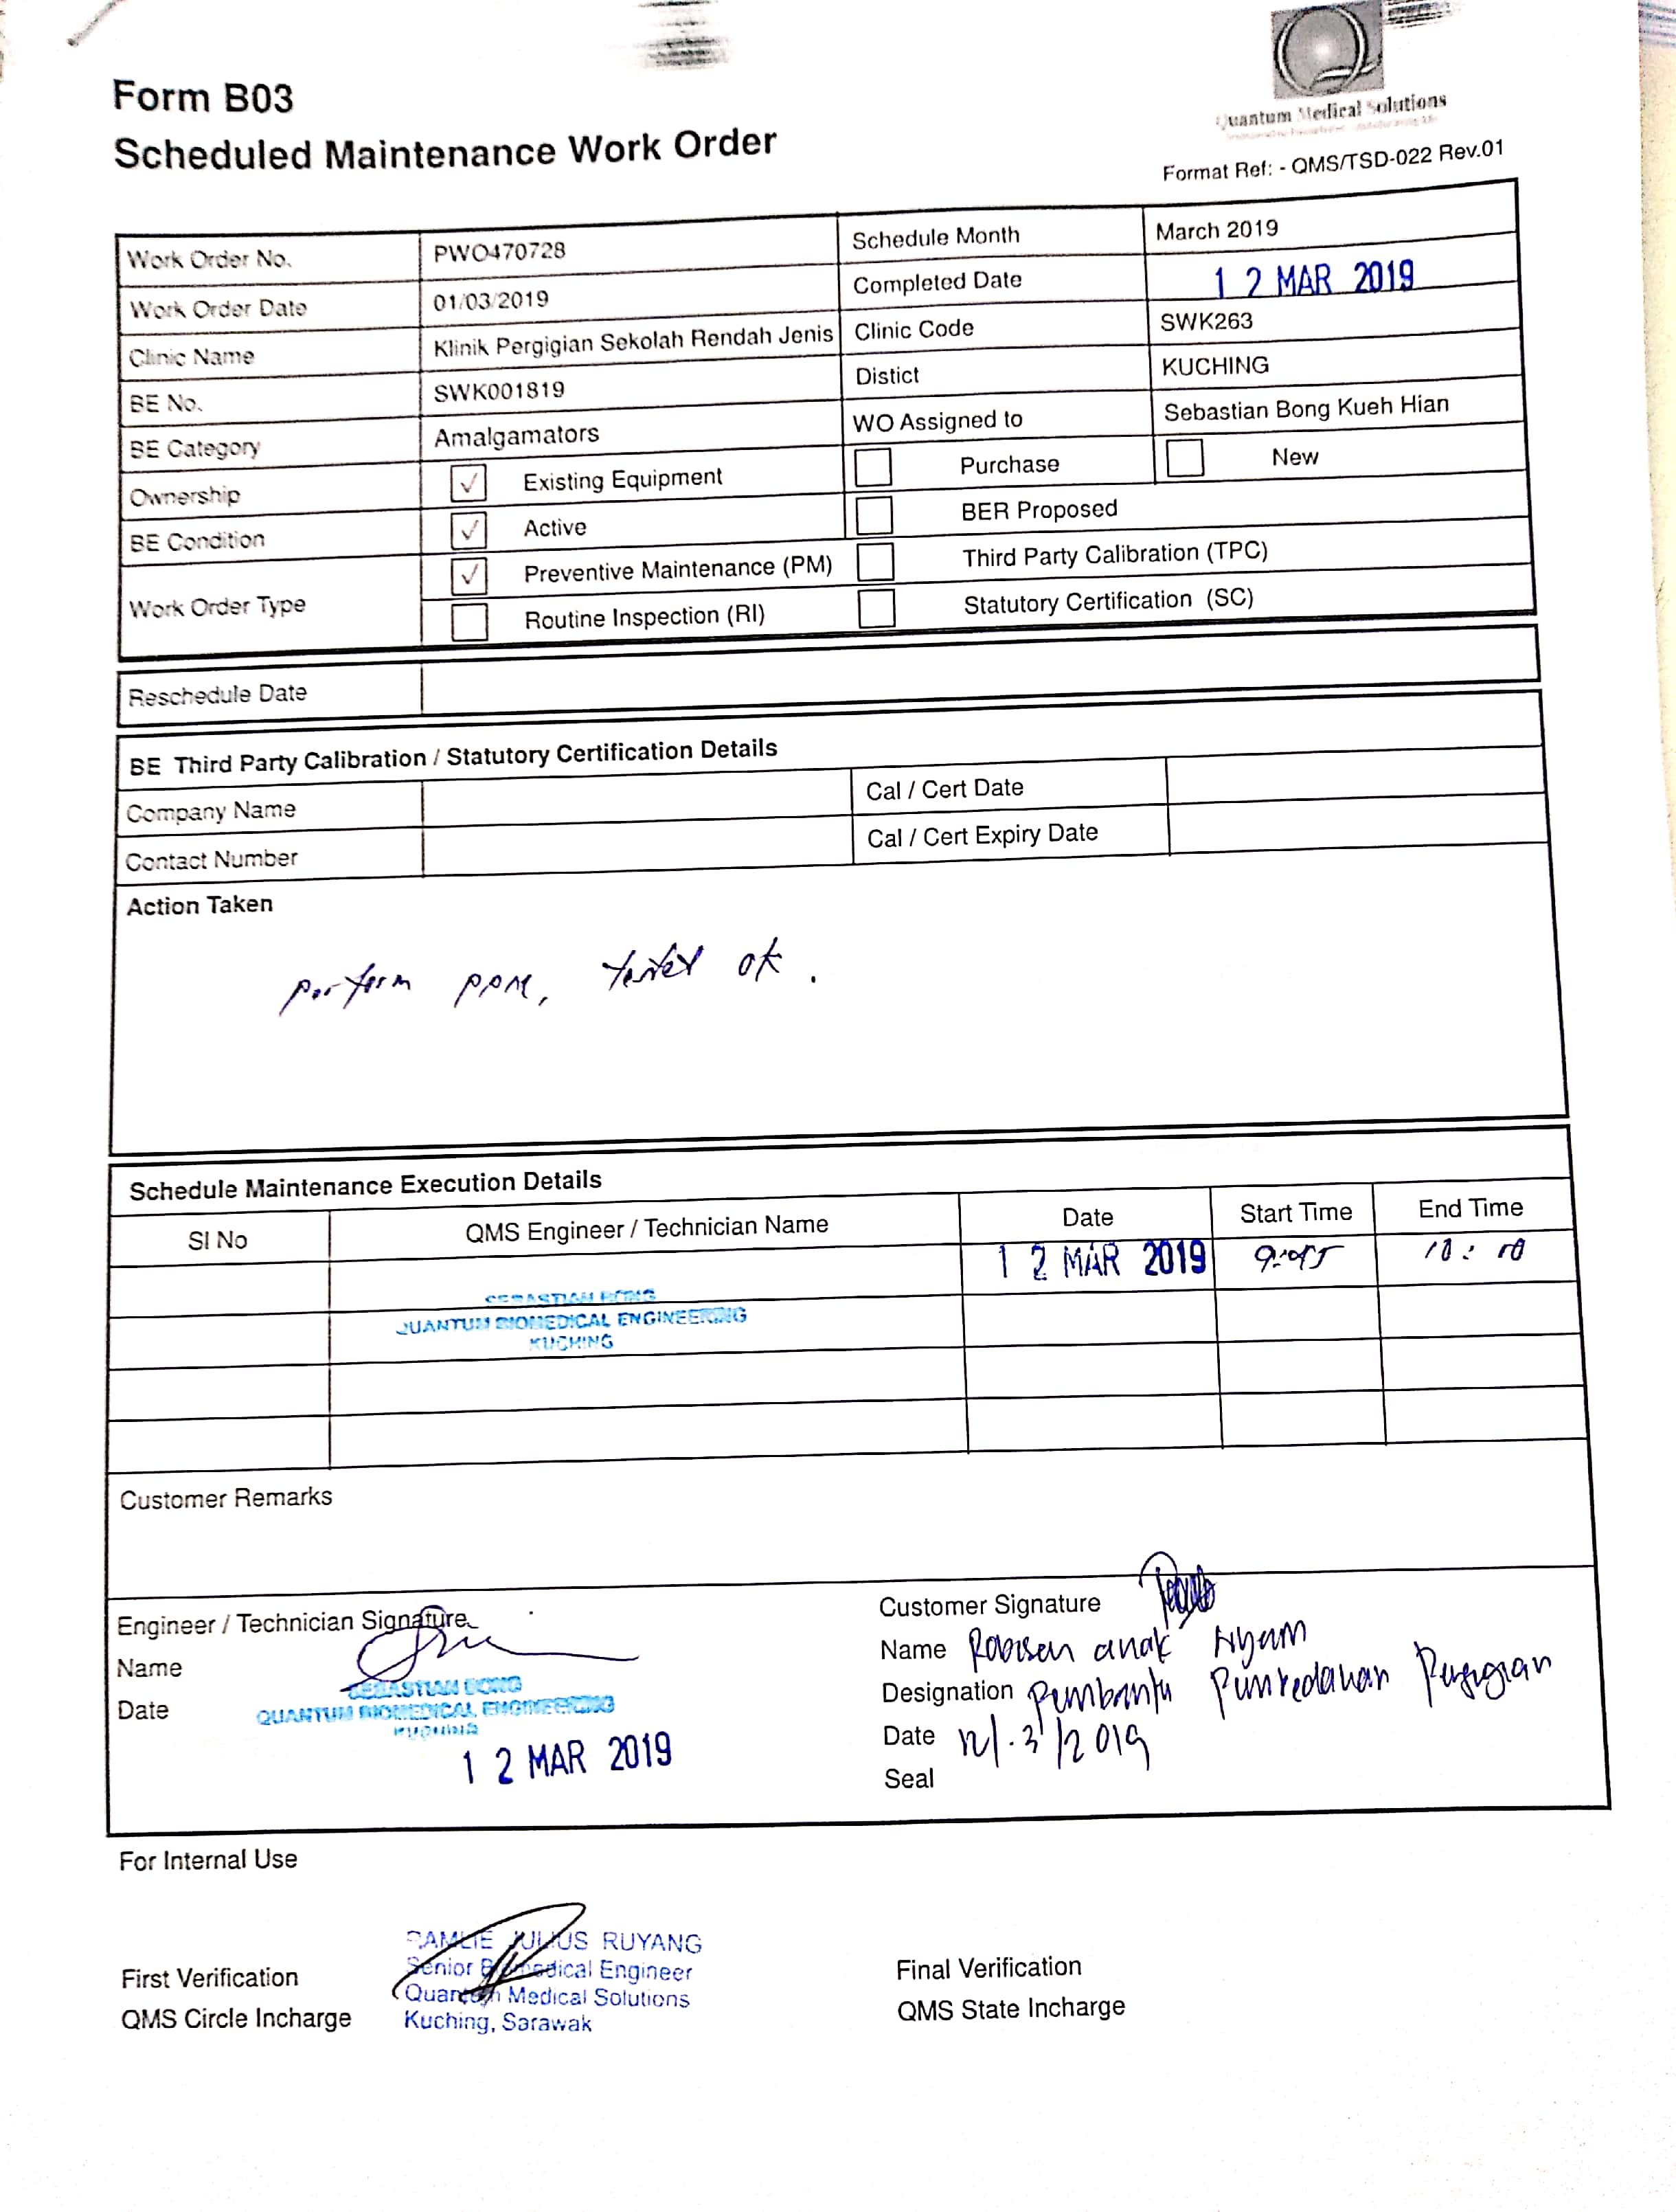 Quantum Medical Solutions
Form B03
Scheduled Maintenance Work Order
Format Ref: - QMS/TSD-022 Rev.01
Work Order No. PWO470728 Schedule Month March 2019
Work Order Date 01/03/2019 Completed Date 12 MAR 2019
Clinic Name Klinik Pergigian Sekolah Rendah Jenis Clinic Code SWK263
BE No. SWK001819 Distict KUCHING
BE Category Amalgamators WO Assigned to Sebastian Bong Kueh Hian
Ownership ✓ Existing Equipment Purchase New
BE Condition ✓ Active BER Proposed
Work Order Type ✓ Preventive Maintenance (PM) Third Party Calibration (TPC)
Routine Inspection (RI) Statutory Certification (SC)
Reschedule Date
BE Third Party Calibration / Statutory Certification Details
Company Name Cal / Cert Date
Contact Number Cal / Cert Expiry Date
Action Taken
perform ppm, tested ok.
Schedule Maintenance Execution Details
Sl No QMS Engineer / Technician Name Date Start Time End Time
12 MAR 2019 9:45 10:10
SEBASTIAN BONG
QUANTUM BIOMEDICAL ENGINEERING
KUCHING
Customer Remarks
Engineer / Technician Signature
Name
Date
SEBASTIAN BONG
QUANTUM BIOMEDICAL ENGINEERING
KUCHING
12 MAR 2019
Customer Signature
Name Robisen anak Nyam
Designation Pembantu Pergigian
Date 12/.3/2019
Seal
For Internal Use
First Verification
QMS Circle Incharge
RAMLIE JULIUS RUYANG
Senior Biomedical Engineer
Quantum Medical Solutions
Kuching, Sarawak
Final Verification
QMS State Incharge